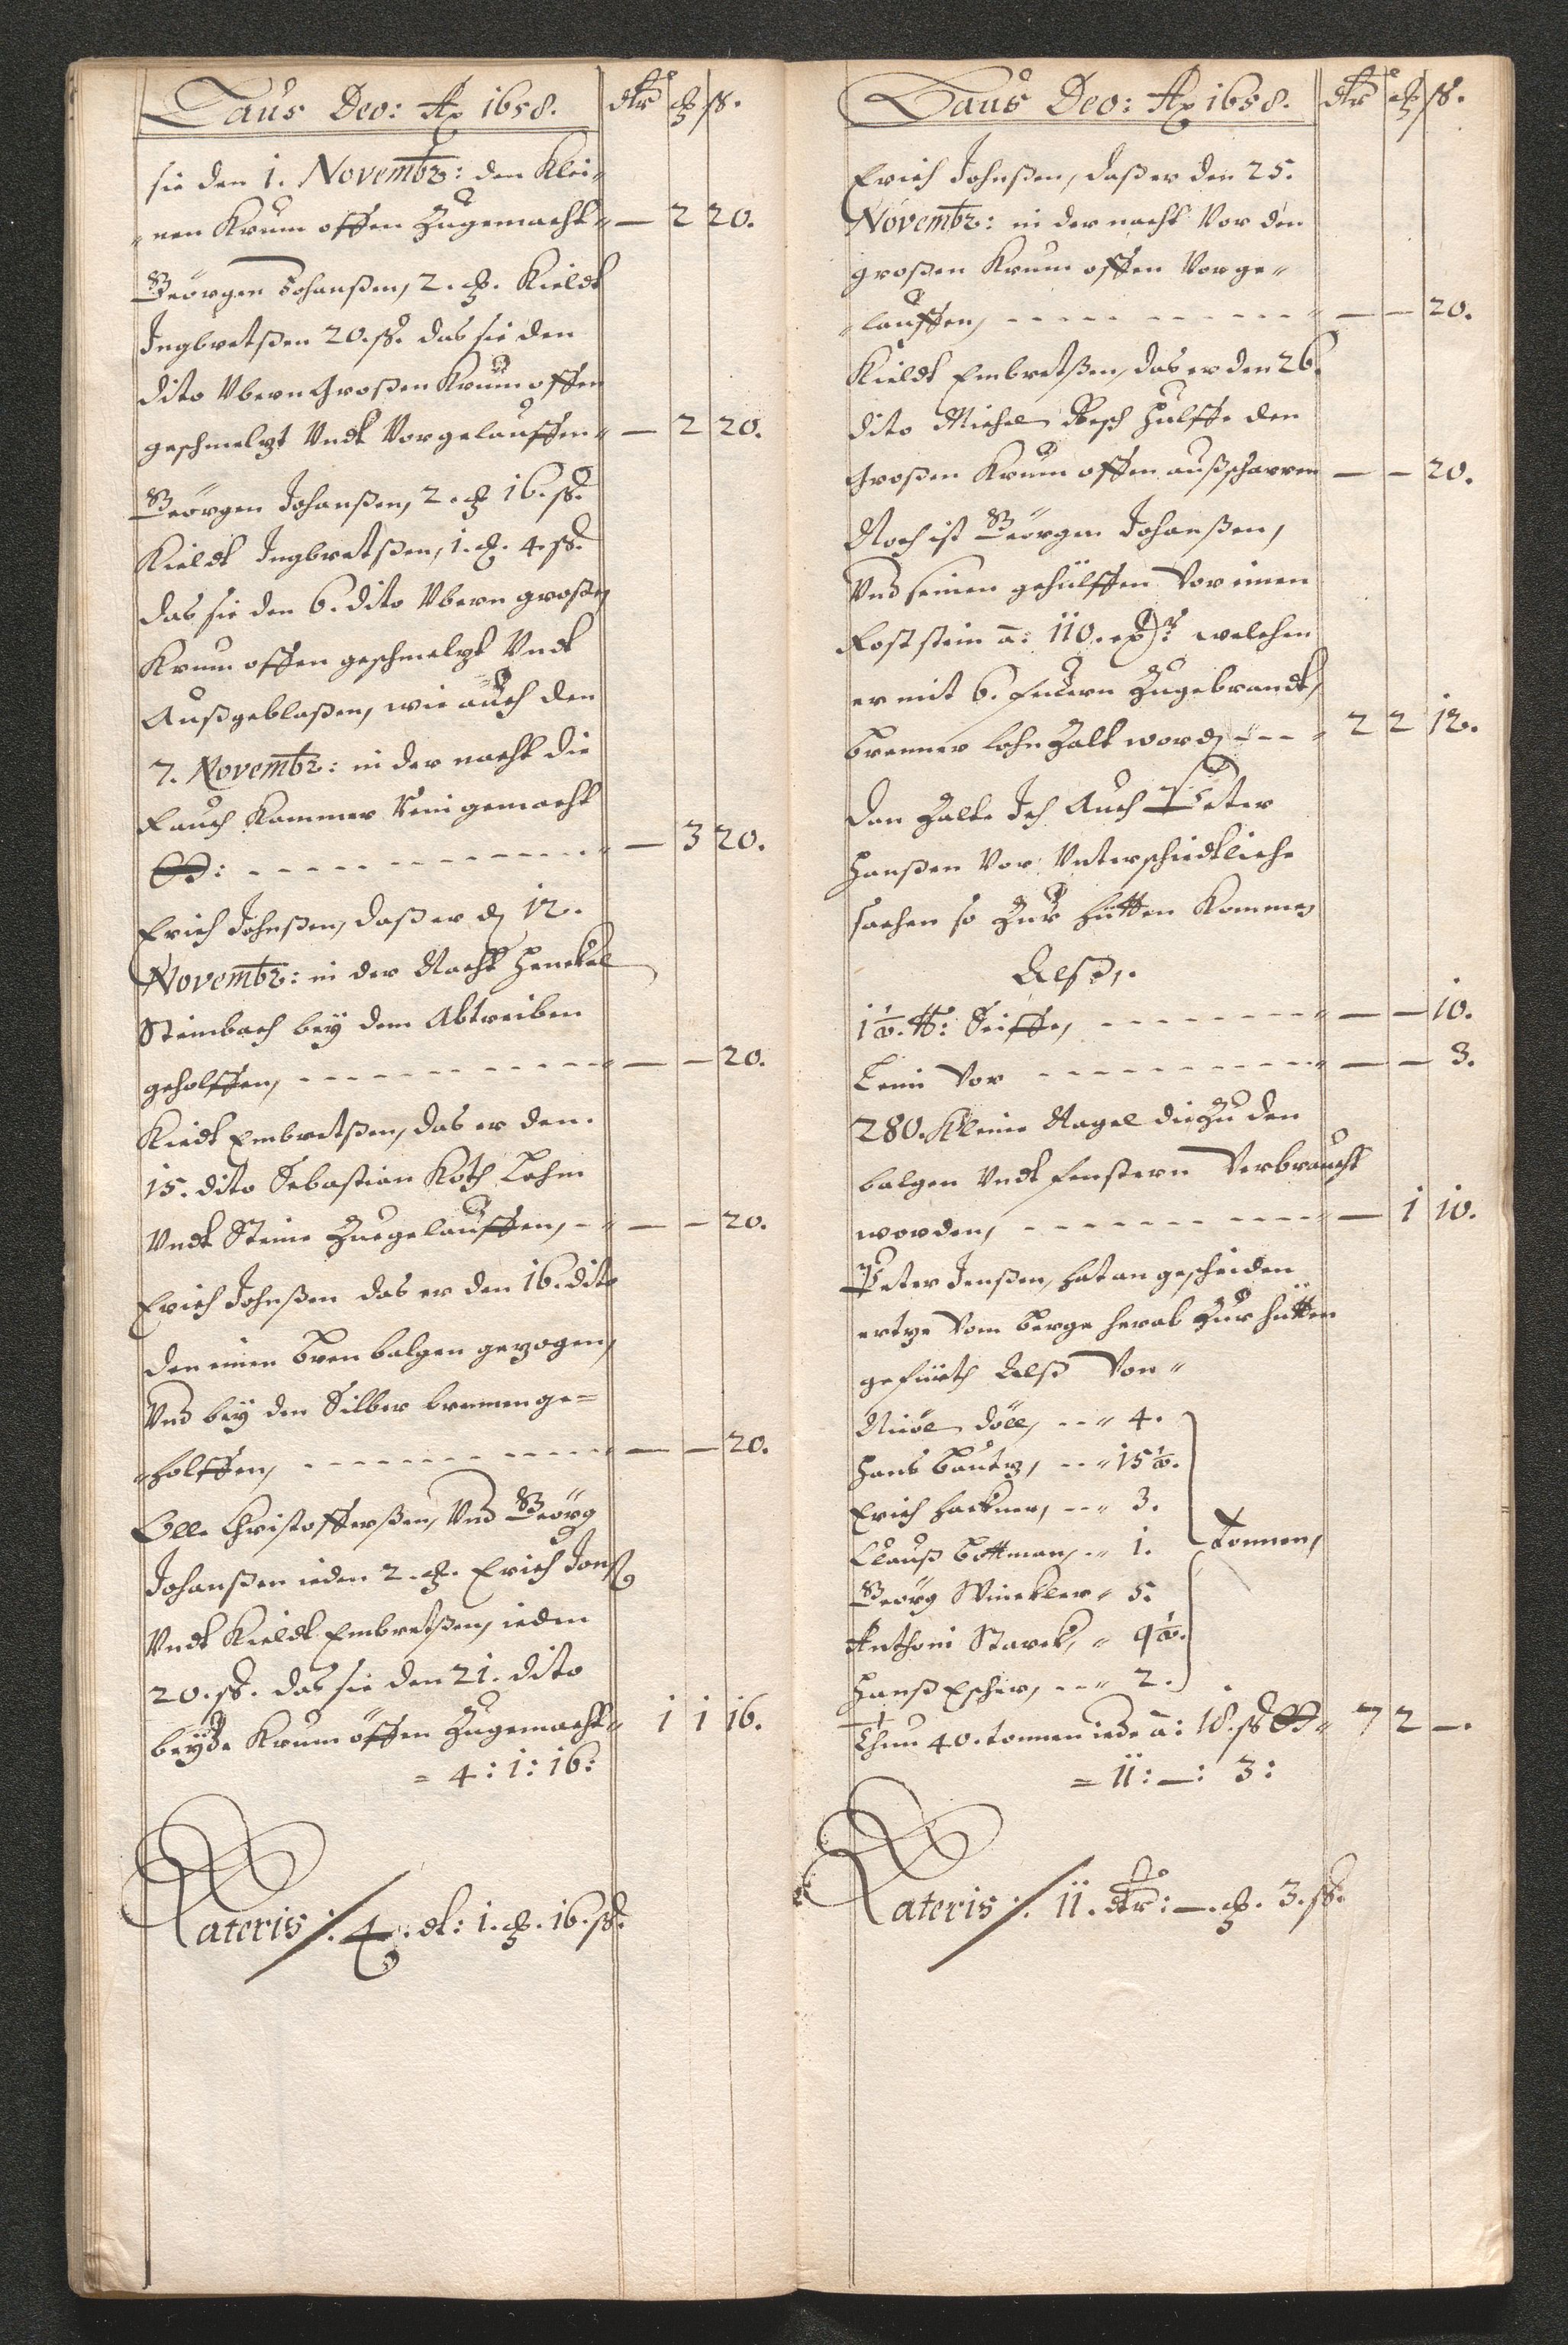 Laus Deo: Aº 1658. dlr ₰ ß.
sie den 1. Novembr: den Klei-
-nen Krum offen Zugemacht - — 2 20.
Georgen Johanßen, 2. ₰. Kieldt
Ingbretßen 20. ß. das sie den
dito Vbern Großen Krum offen
geschmeltzt Vndt Vorgelauffen - — 2 20.
Georgen Johanßen, 2. ₰ 16. ß.
Kieldt Ingbretßen, 1. ₰. 4. ß.
das sie den 6. dito Vbern großen
Krum offen geschmeltzt Vndt
Außgeblaßen, wie auch den
7. Novembr: in der nacht die
Rauch Kammer Rein gemacht
- — 3 20.
Erich Johnßen, daß er d 12.
Novembr: in der Nacht Henckel
Steinbach bey dem Abtreiben
geholffen, - — — 20.
Kiedt Embretßen, das er den.
15. dito Sebastian Koth Lehm
Vndt Steine Zuegelauffen, - — — 20.
Erich Johnßen das er den 16. dito
den einen bren balgen gezogen,
Vnd bey den Silber brennen ge=
-holffen, - — — 20.
Olle Christofferßen, Vnd Georg
Johanßen ieden 2. ₰. Erich Jonß
Vndt Kieldt Embretßen, ieden
20. ß. das sie den 21. dito
beyde Krum öffen Zugemacht - 1 1 16.
= 4: 1: 16:
Lateris /: 4. dl: 1. ₰. 16. ß.
Laus Deo: Aº 1658. dlr ₰ ß.
Erich Johnßen, daß er den 25.
Novembr: in der nacht Vor den
großen Krum offen Vorge-
-lauffen, - — — 20.
Kieldt Embretßen, das er den 26.
dito Michel Resch Hülffe den
Großen Krum offen außscharren — — 20.
Noch ist Georgen Johanßen,
Vnd seinen gehülffen Vor einen
Rost stein a: 110. welchen
er mit 6. feüern Zugebrandt,
brenner lohn Zalt word - 2 2 12.
Dan Zalte Ich Auch Peter
Hanßen Vor Vnterschiedtliche
sachen so Zur hütten Kommen
Alß,.
1½. ℔: Seiffe, - — — 10.
Leim Vor - — — 3.
280. Kleine Nagel die Zu den
balgen Vndt fenstern Verbraucht
worden, - — 1 10.
Peter Jenßen, hat an gescheiden
ertze Vom berge herab Zur hütten
geführth Alß Von -
Döll, - 4.
Hans bautz, - 15½.
Erich Hackner, - 3.
Clauß bottman, - 1. Tonnen,
Georg Winckler - 5.
Anthoni Starck, - 9½.
Hanß Escher, - 2.
Thun 40. tonnen iede a: 18. ß - 7 2 —.
= 11: —: 3:
Lateris /: 11. dlr: —. ₰. 3. ß.